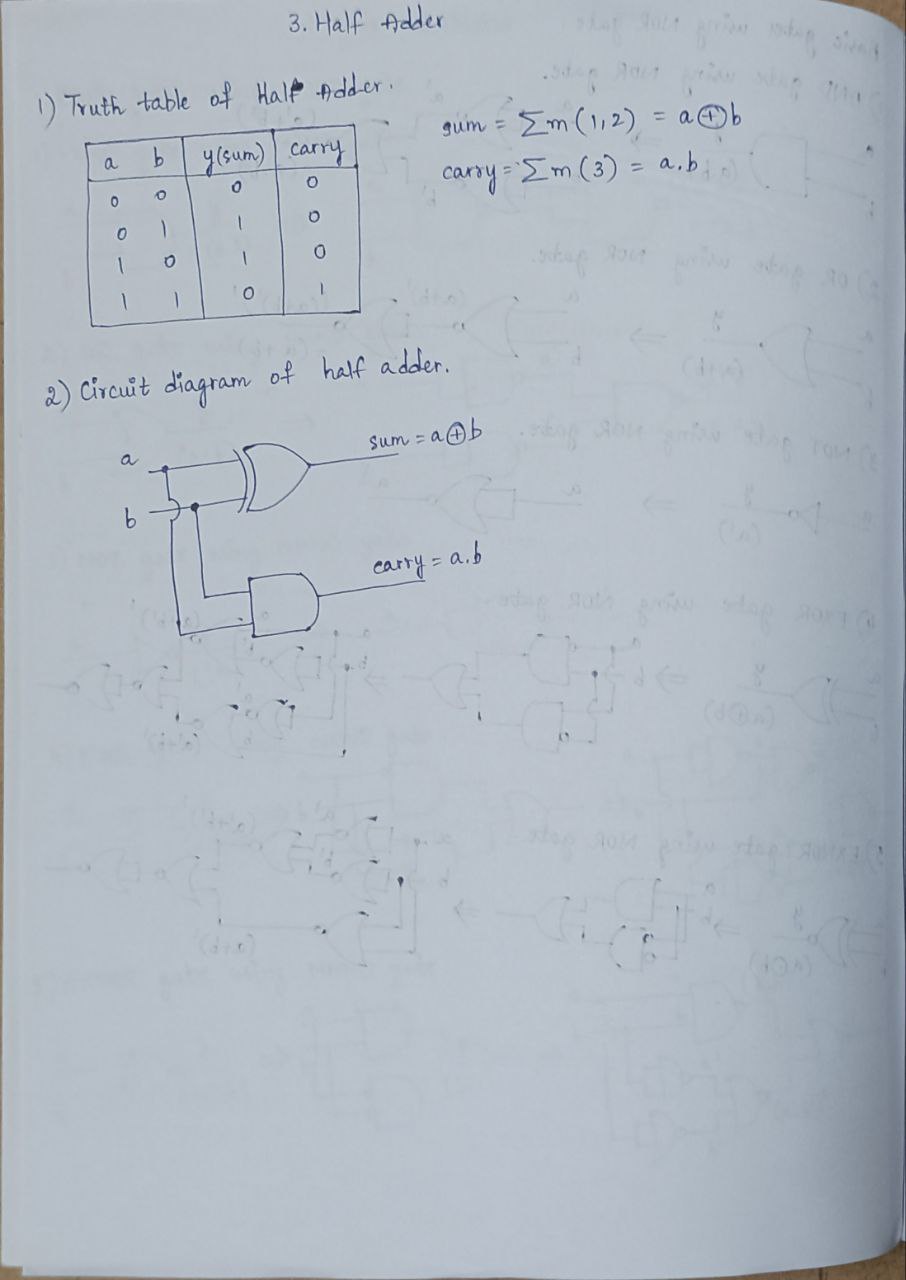 3. Half Adder
1) Truth table of Half Adder.
a b y(sum) carry
0 0 0 0
0 1 1 0
1 0 1 0
1 1 0 1
sum = Σm(1,2) = a⊕b
carry = Σm(3) = a.b
2) Circuit diagram of half adder.
a
b
sum = a⊕b
carry = a.b